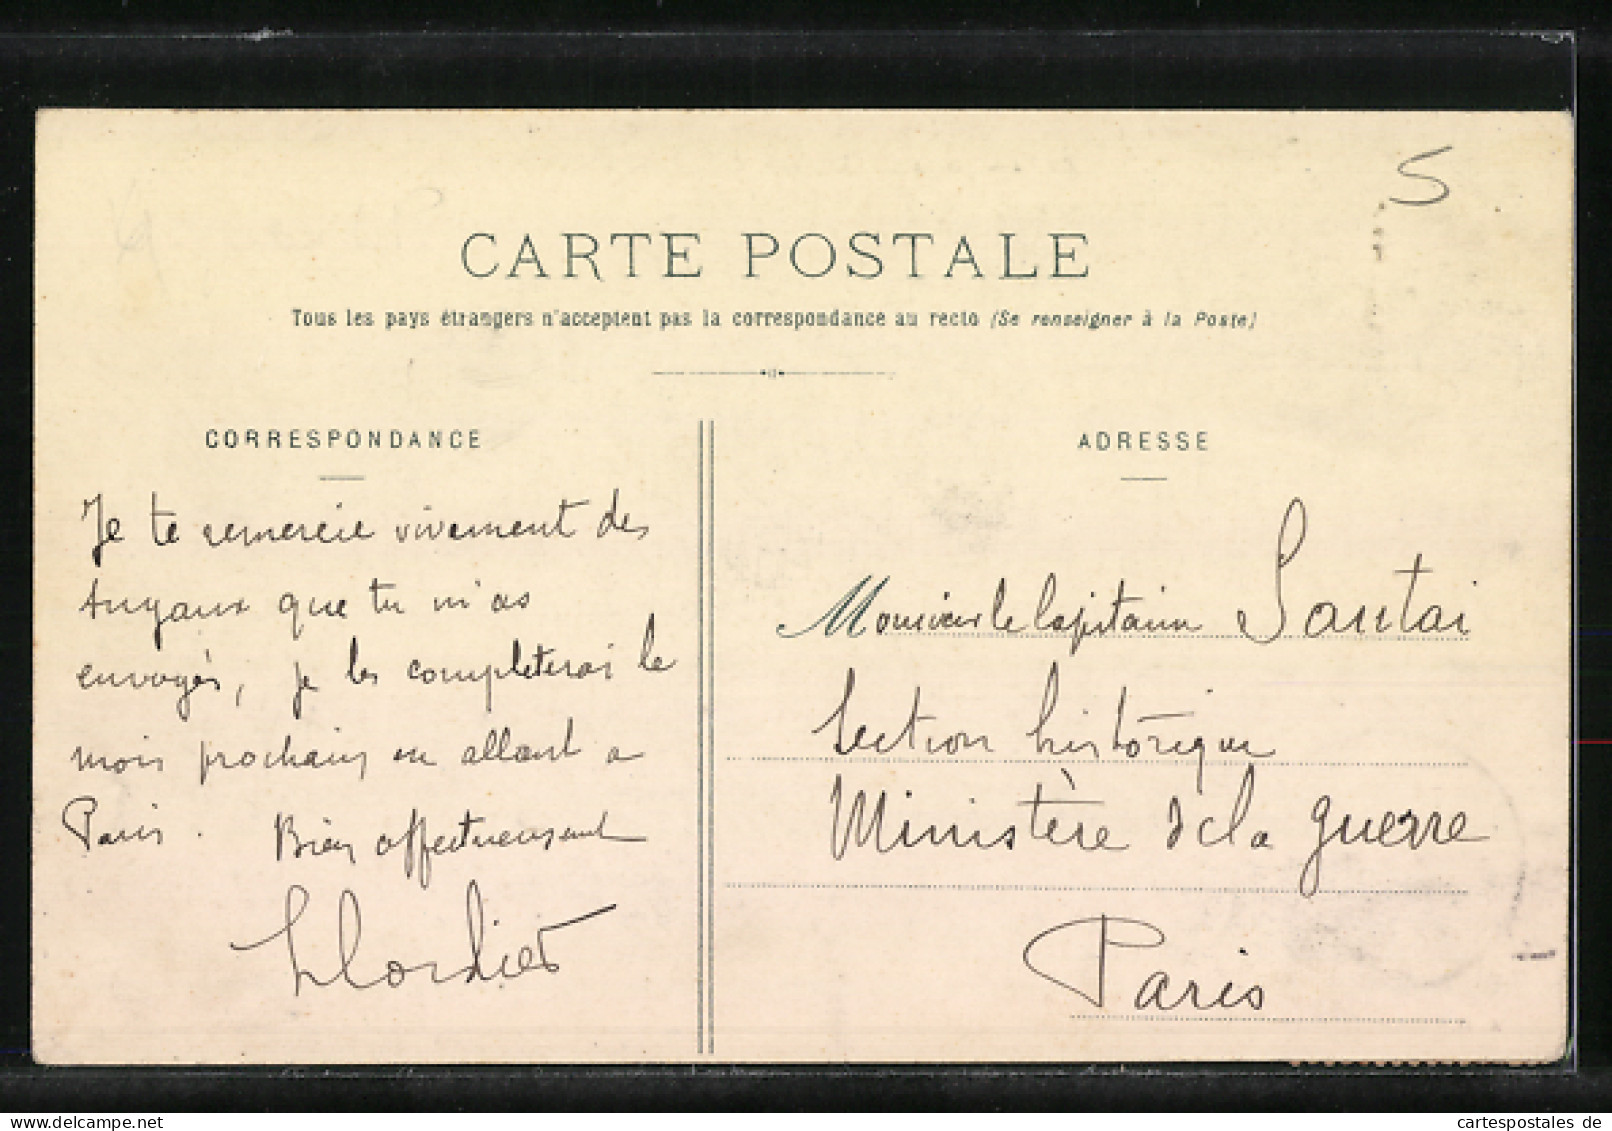 S
CARTE POSTALE
Tous les pays étrangers n'acceptent pas la correspondance au recto (Se renseigner à la Poste)
CORRESPONDANCE
Je te remercie vivement des
tuyaux que tu m'as
envoyés, je les completerai le
mois prochain en allant a
Paris. Bien affectueusement
ADRESSE
Monsieur le Capitaine Sautai
Section historique
Ministère de la guerre
Paris
cartespostales de